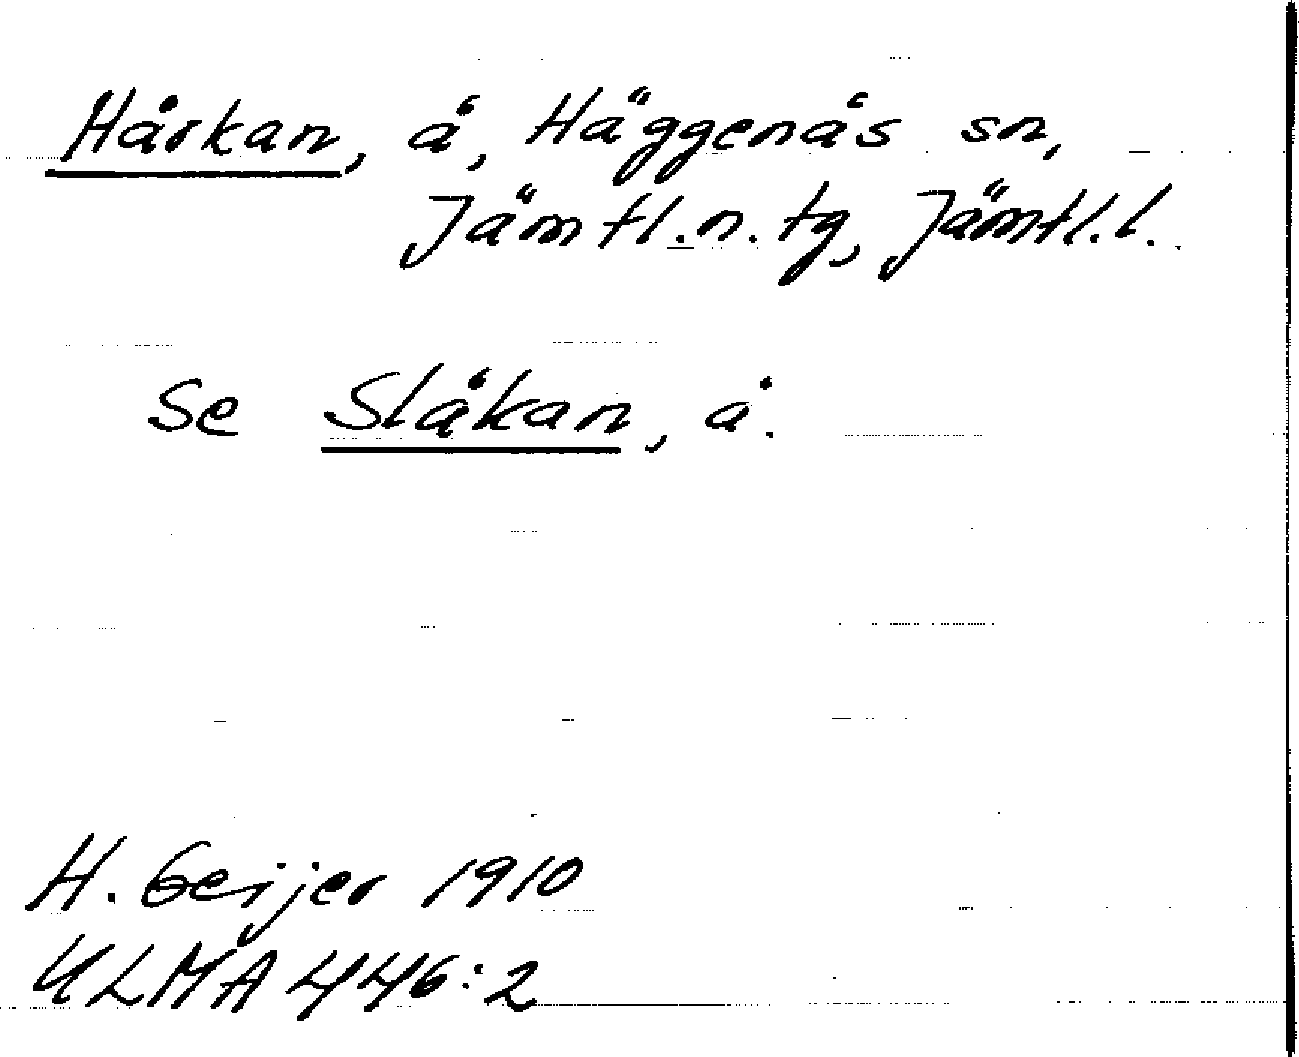 Hårkan, å, Häggenås sn,
Jämtl.n.tg, Jämtl.l.
Se Slåkan, å.
H. Geijer 1910
ULMA 446:2